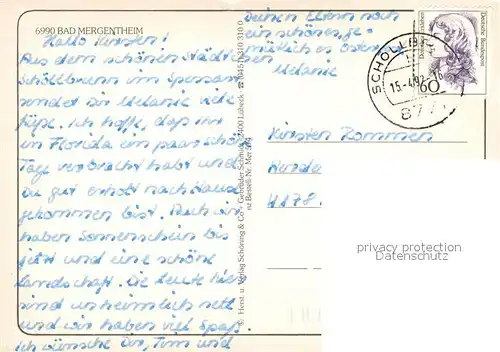 6990 BAD MERGENTHEIM
Hallo Kirsten!
Aus dem schönen Städtchen
Schöllbrunn im Spessart
sendet dir Melanie viele
Ich hoffe, dass ihr
in Florida ein paar schöne
Tage verbracht habt und
Du gut erholt nach Hause
gekommen bist. Auch wir
haben Sonnenschein bis
jetzt und eine schöne
Landschaft. Die Leute hier
sind unheimlich nett
und wir haben viel Spaß.
Ich wünsche Dir, Tim und
Deinen Eltern noch
ein schönes, ge-
mütliches Ostern
Melanie
© Herst. u. Verlag Schöning & Co · Gebrüder Schmidt, 2400 Lübeck
Bestell-Nr. Mer.
Deutsche Bundespost
60
SCHOLLB
15.-4.92
877
Kirsten Rommen
4178
privacy protection
Datenschutz